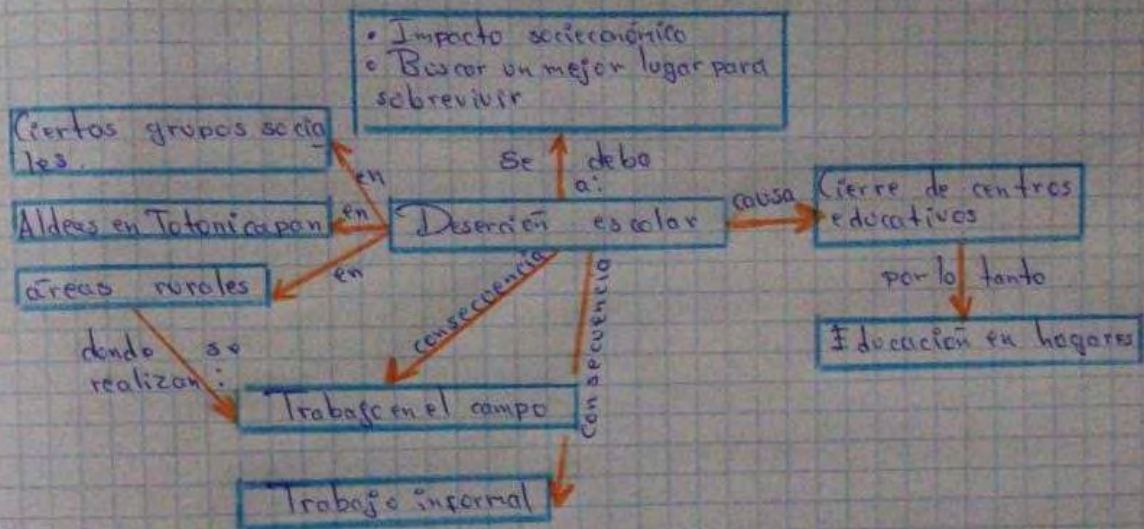 • Impacto sociecónómico
• Buscar un mejor lugar para
sobrevivir
Ciertos grupos socia
les.
en
Se debe
a:
Aldeas en Totonicapan
en
Deserción escolar
causa
Cierre de centros
educativos
áreas rurales
en
por lo tanto
Educación en hogares
donde se
realizan:
consecuencia
Consecuencia
Trabajo en el campo
Trabajo informal